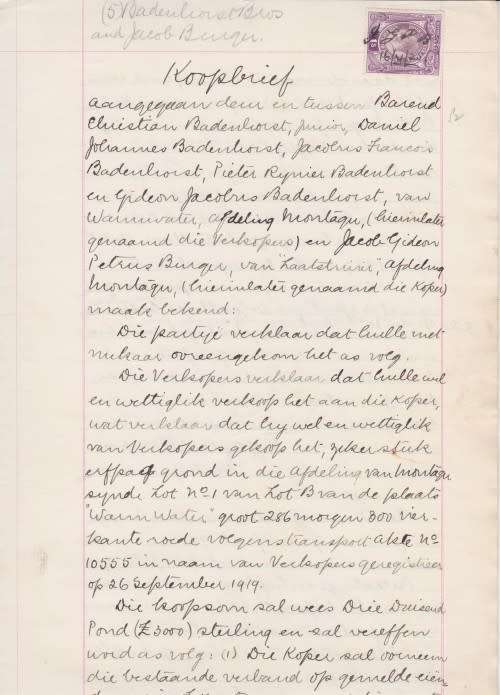 (5 Badenhorst Bros
and Jacob Burger.
Koopbrief
aangegaan deur en tussen Barend
Christian Badenhorst, junior, Daniel
Johannes Badenhorst, Jacobus Francois
Badenhorst, Pieter Rynier Badenhorst
en Gideon Jacobus Badenhorst, van
Warmwater, afdeling Montagu, (hierinlater
genaamd die Verkopers) en Jacob Gideon
Petrus Burger, van "Laatsrivier", afdeling
Montagu, (hierinlater genaamd die Koper)
maak bekend:
Die partye verklaar dat hulle met
mekaar ooreengekom het as volg.
Die Verkopers verklaar dat hulle wel
en wettiglik verkoop het aan die Koper,
wat verklaar dat hy wel en wettiglik
van Verkopers gekoop het, seker stuk
erfpag grond in die afdeling van Montagu
synde Lot No 1 van Lot B van de plaats
"Warm Water" groot 286 morgen 300 vier-
kante roede volgens transport akte No
10555 in naam van Verkopers geregistreer
op 26 September 1919.
Die koopsom sal wees Drie Duisend
Pond (£3000) sterling en sal vereffen
word as volg: (1) Die Koper sal oorneem
die bestaande verband op gemelde eien-